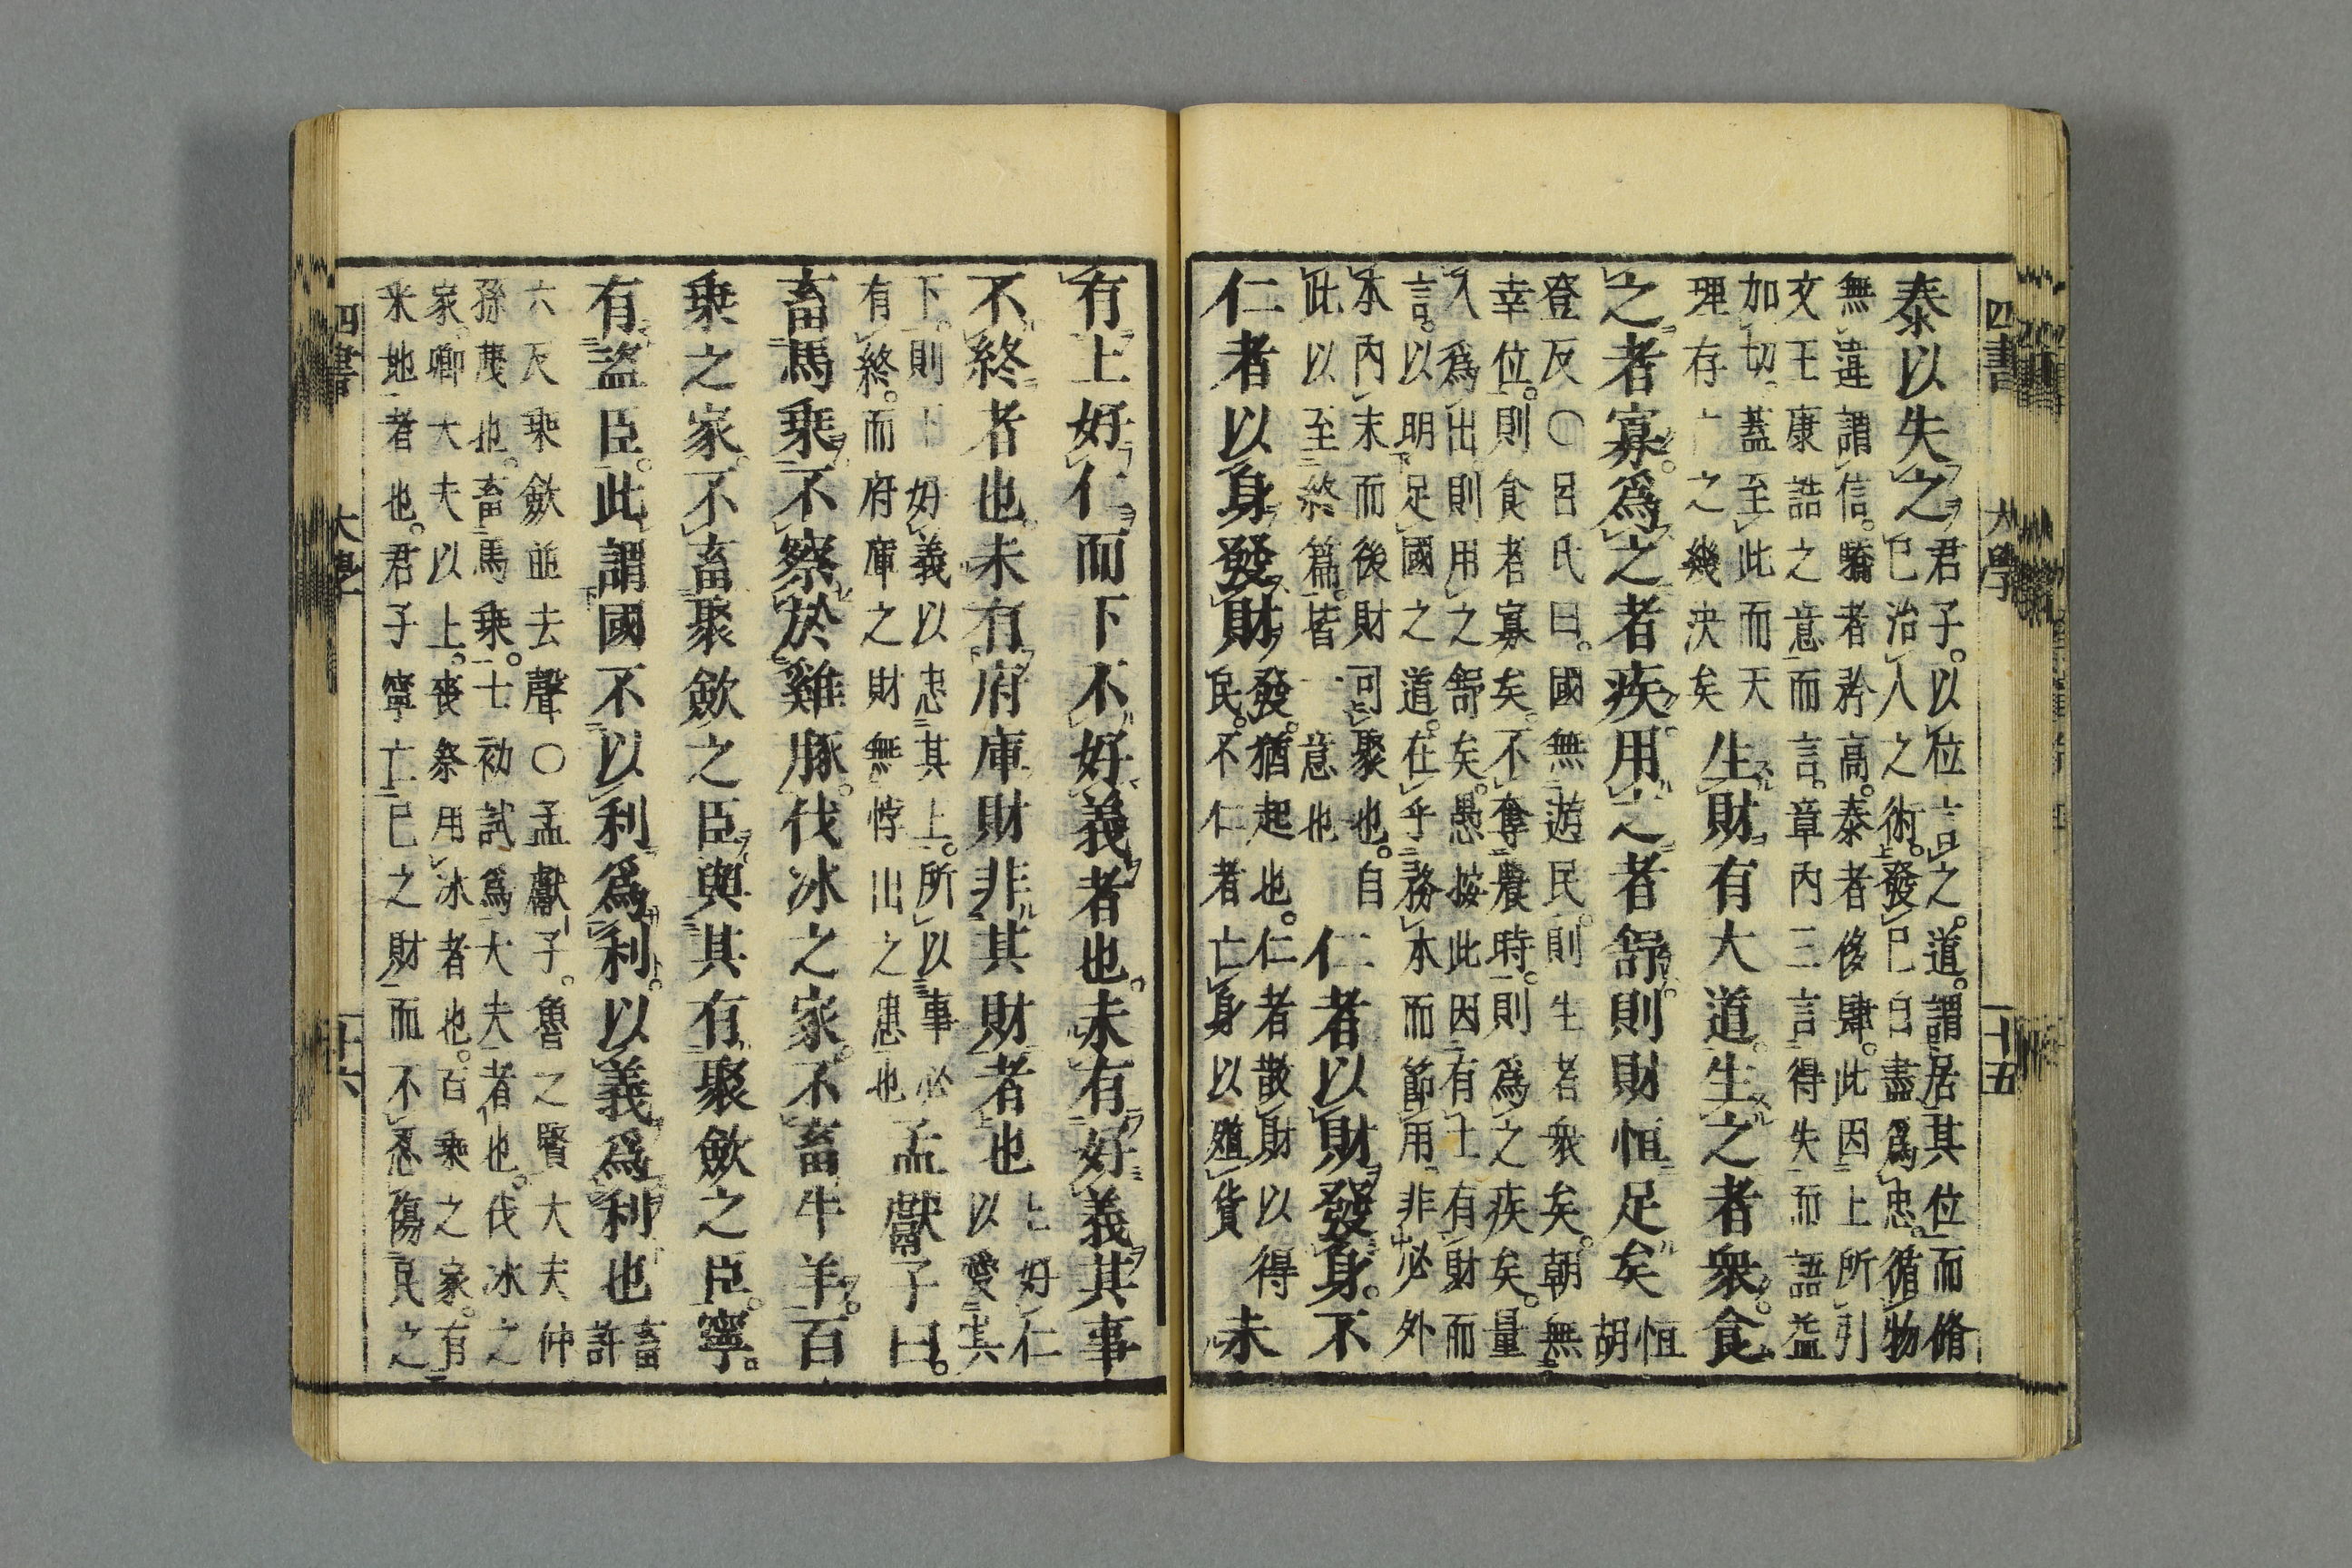 四書 大學 十五
泰以失之君子。以位言之。道。謂居其位而脩
己治人之術。發己自盡爲忠。循物
無違謂信。驕者矜高。泰者侈肆。此因上所引
文王康誥之意而言。章内三言得失而語益
加切。蓋至此而天
理存亡之幾決矣
生財有大道。生之者衆。食
之者寡。爲之者疾。用之者舒。則財恒足矣恒
胡
登反〇呂氏曰。國無遊民。則生者衆矣。朝無
幸位。則食者寡矣。不奪農時。則爲之疾矣。量
入爲出則用之舒矣。愚按此因有土有財而
言。以明足國之道。在乎務本而節用。非必外
本内末而後財可聚也。自
此以至終篇。皆一意也
仁者以財發身。不
仁者以身發財發。猶起也。仁者散財以得
民。不仁者亡身以殖貨
未
有上好仁而下不好義者也。未有好義其事
不終者也。未有府庫財非其財者也上好仁
以愛其
下。則下好義以忠其上。所以事必
有終。而府庫之財無悖出之患也
孟獻子曰。
畜馬乘。不察於雞豚。伐冰之家。不畜牛羊。百
乘之家。不畜聚斂之臣與其有聚斂之臣。寧。
有盜臣。此謂國不以利爲利。以義爲利也畜
許
六反乘斂並去聲〇孟獻子。魯之賢大夫仲
孫蔑也。畜馬乘。士初試爲大夫者也。伐冰之
家。卿大夫以上。喪祭用冰者也。百乘之家。有
采地者也。君子寧亡己之財而不忍傷民之
四書 大學 十六